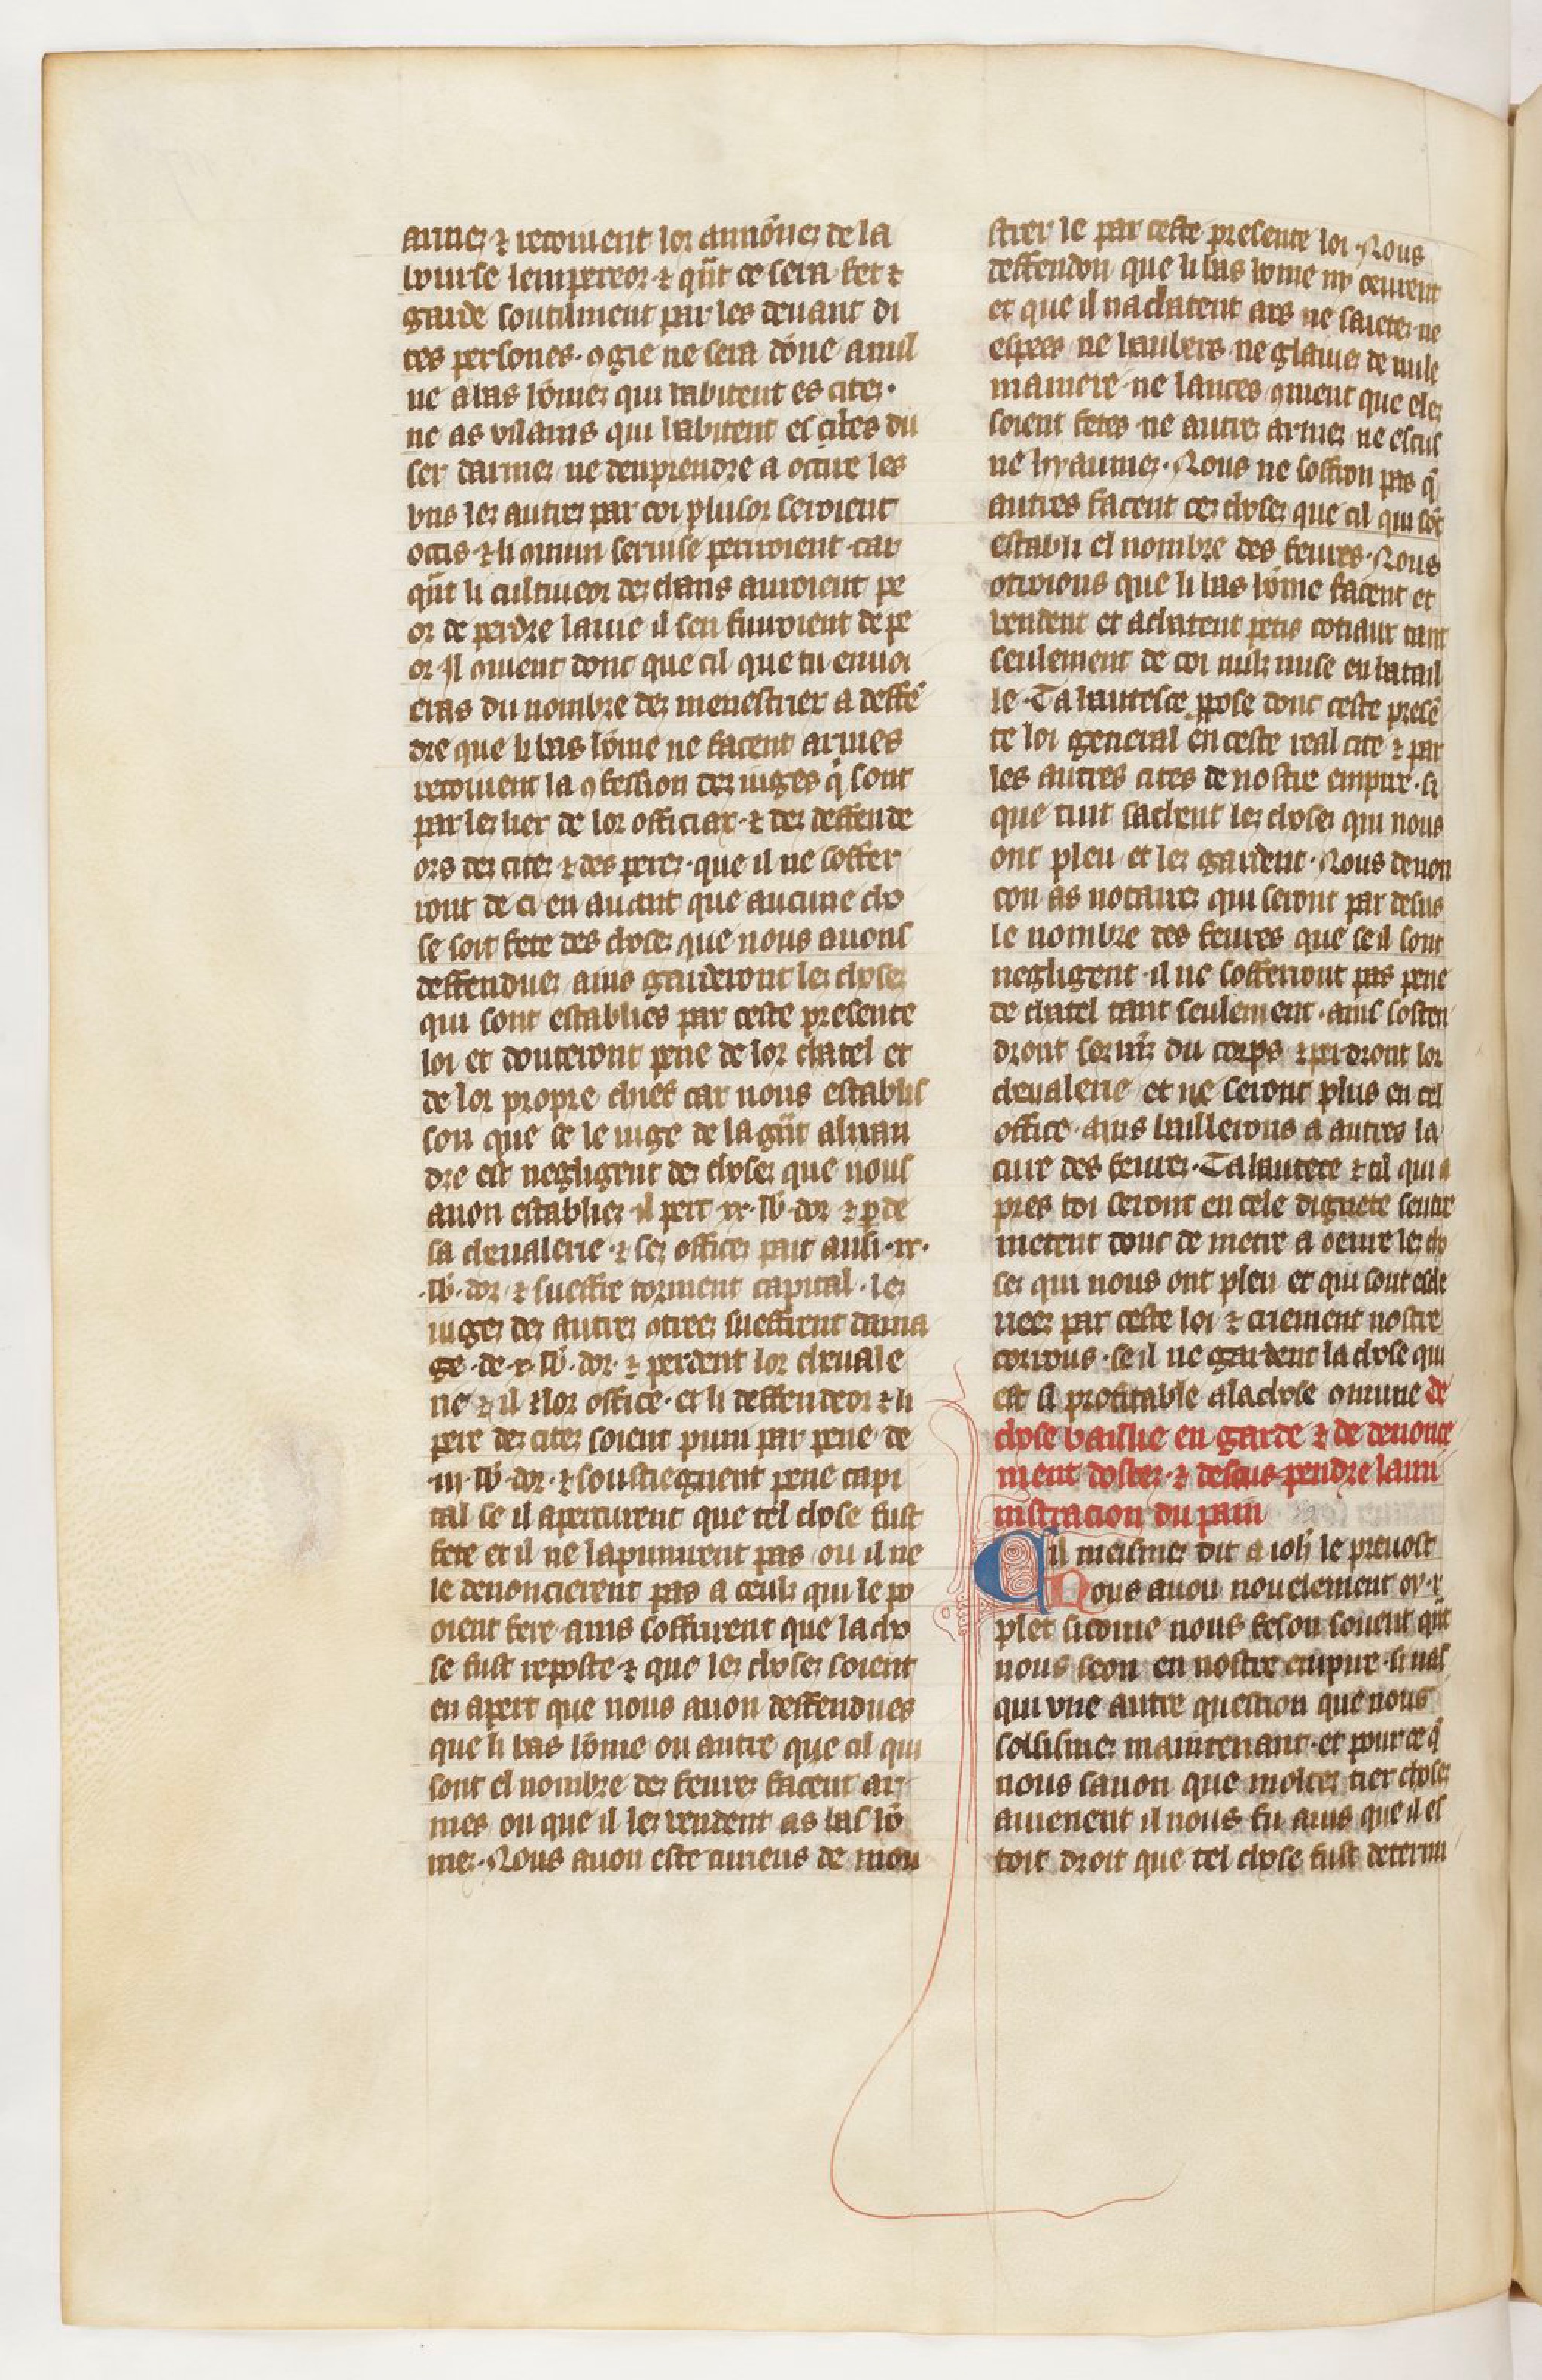 armes ⁊ recoiuent lor annōnes de la
bourse lempereor ⁊ q̄nt ce sera fet ⁊
garde soutilment par les deuant di
tes persones. ꝯgie ne sera dōne a nul
ne a bas hōmes qui habitent es cites.
ne as vilains qui habitent es chites du
ser darmes ne denprendre a occirre les
vns les autres par coi plusor seroient
occis ⁊ li ꝯmun seruise periroient car
q̄nt li cultiueor des chans auroient pe
or de perdre la uie il sen fuiroient de pe
or Il ꝯuient donc que cil que tu enuoi
eras du nombre des menestriex a deffē
dre que li bas hōme ne facent armes
recoiuent la ꝯfession des iuges q̄ sont
par les liex de lor officiax ⁊ des deffende
ors des cites ⁊ des peres. que il ne soffer
ront de ci en auant que aucune cho
se soit fete des choses que nous auons
deffendues ains garderont les choses
qui sont establies par ceste presente
loi et douteront pene de lor chatel et
de lor propre chief car nous establis
son que se le iuge de la gn̄t alixan
dre est negligent des choses que nous
auon establies il pert .xx. lb. dor ⁊ ꝑde
sa cheualerie ⁊ ses offices pait ausi .xx.
.lb. dor ⁊ sueffre torment capital. les
iuges des autres ꝯtrees sueffrent dama
ge. de .x. lb. dor. ⁊ perdent lor cheuale
rie ⁊ il ⁊ lor office. et li deffendeor ⁊ li
pere des cites soient puni par pene de
.iii. lb. dor. ⁊ soustiegnent pene capi
tal se il apercurent que tel chose fust
fete et il ne la punirent pas ou il ne
le denoncierent pas a ceuls qui le po
oient fere ains soffrirent que la cho
se fust reposte ⁊ que les choses soient
en apert que nous auon deffendues
que li bas hōme ou autre que cil qui
sont el nombre des feures facent ar
mes ou que il les vendent as bas hō
mes. Nous auon este curieus de mon
strer le par ceste presente loi. Nous
deffendon que li bas home ny oeurent
et que il nachatent ars ne saietes ne
espees ne haubers ne glaiues de nule
maniere ne lances ꝯment que eles
soient fetes ne autres armes ne escus
ne hyaumes. Nous ne soffron pas q̄
autres facent ces choses que cil qui sōt
establi el nombre des feures. Nous
otroions que li bas hōme facent et
vendent et achatent petis cotiaux tant
seulement de coi nuls nuse en batail
le. Ta hautesce ꝓpose donc ceste presē
te loi general en ceste real cite ⁊ par
les autres cites de nostre empire. si
que tuit sachent les choses qui nous
ont pleu et les gardent. Nous denon
con as notaires qui seront par desus
le nombre des feures que se il sont
negligent. il ne sofferront pas pene
de chatel tant seulement. ains sosten
dront du corps ⁊ perdront lor
cheualerie et ne seront plus en cel
office. ains baillerons a autres la
cure des feures. Ta hautece ⁊ cil qui a
pres toi seront en cele dignete sentre
metent donc de metre a oeure les cho
ses qui nous ont pleu et qui sont
par ceste loi ⁊ criement nostre
corrous. se il ne gardent la chose qui
est si profitable a la chose ꝯmune de
chose baillie en garde ⁊ de denonce
ment dostes. ⁊ de sus pendre lami
nistracion du pain
Cil meismes dit a ioh̄ le preuost
Nous auon nouelement oy .i.
plet si come nous feson souent q̄nt
nous seon en nostre empire. si nas
qui vne autre question que nous
sossismes maintenant. et pour ce q̄
nous sauon que moltes tiex choses
auienent il nous fu auis que il es
toit droit que tel chose fust determi